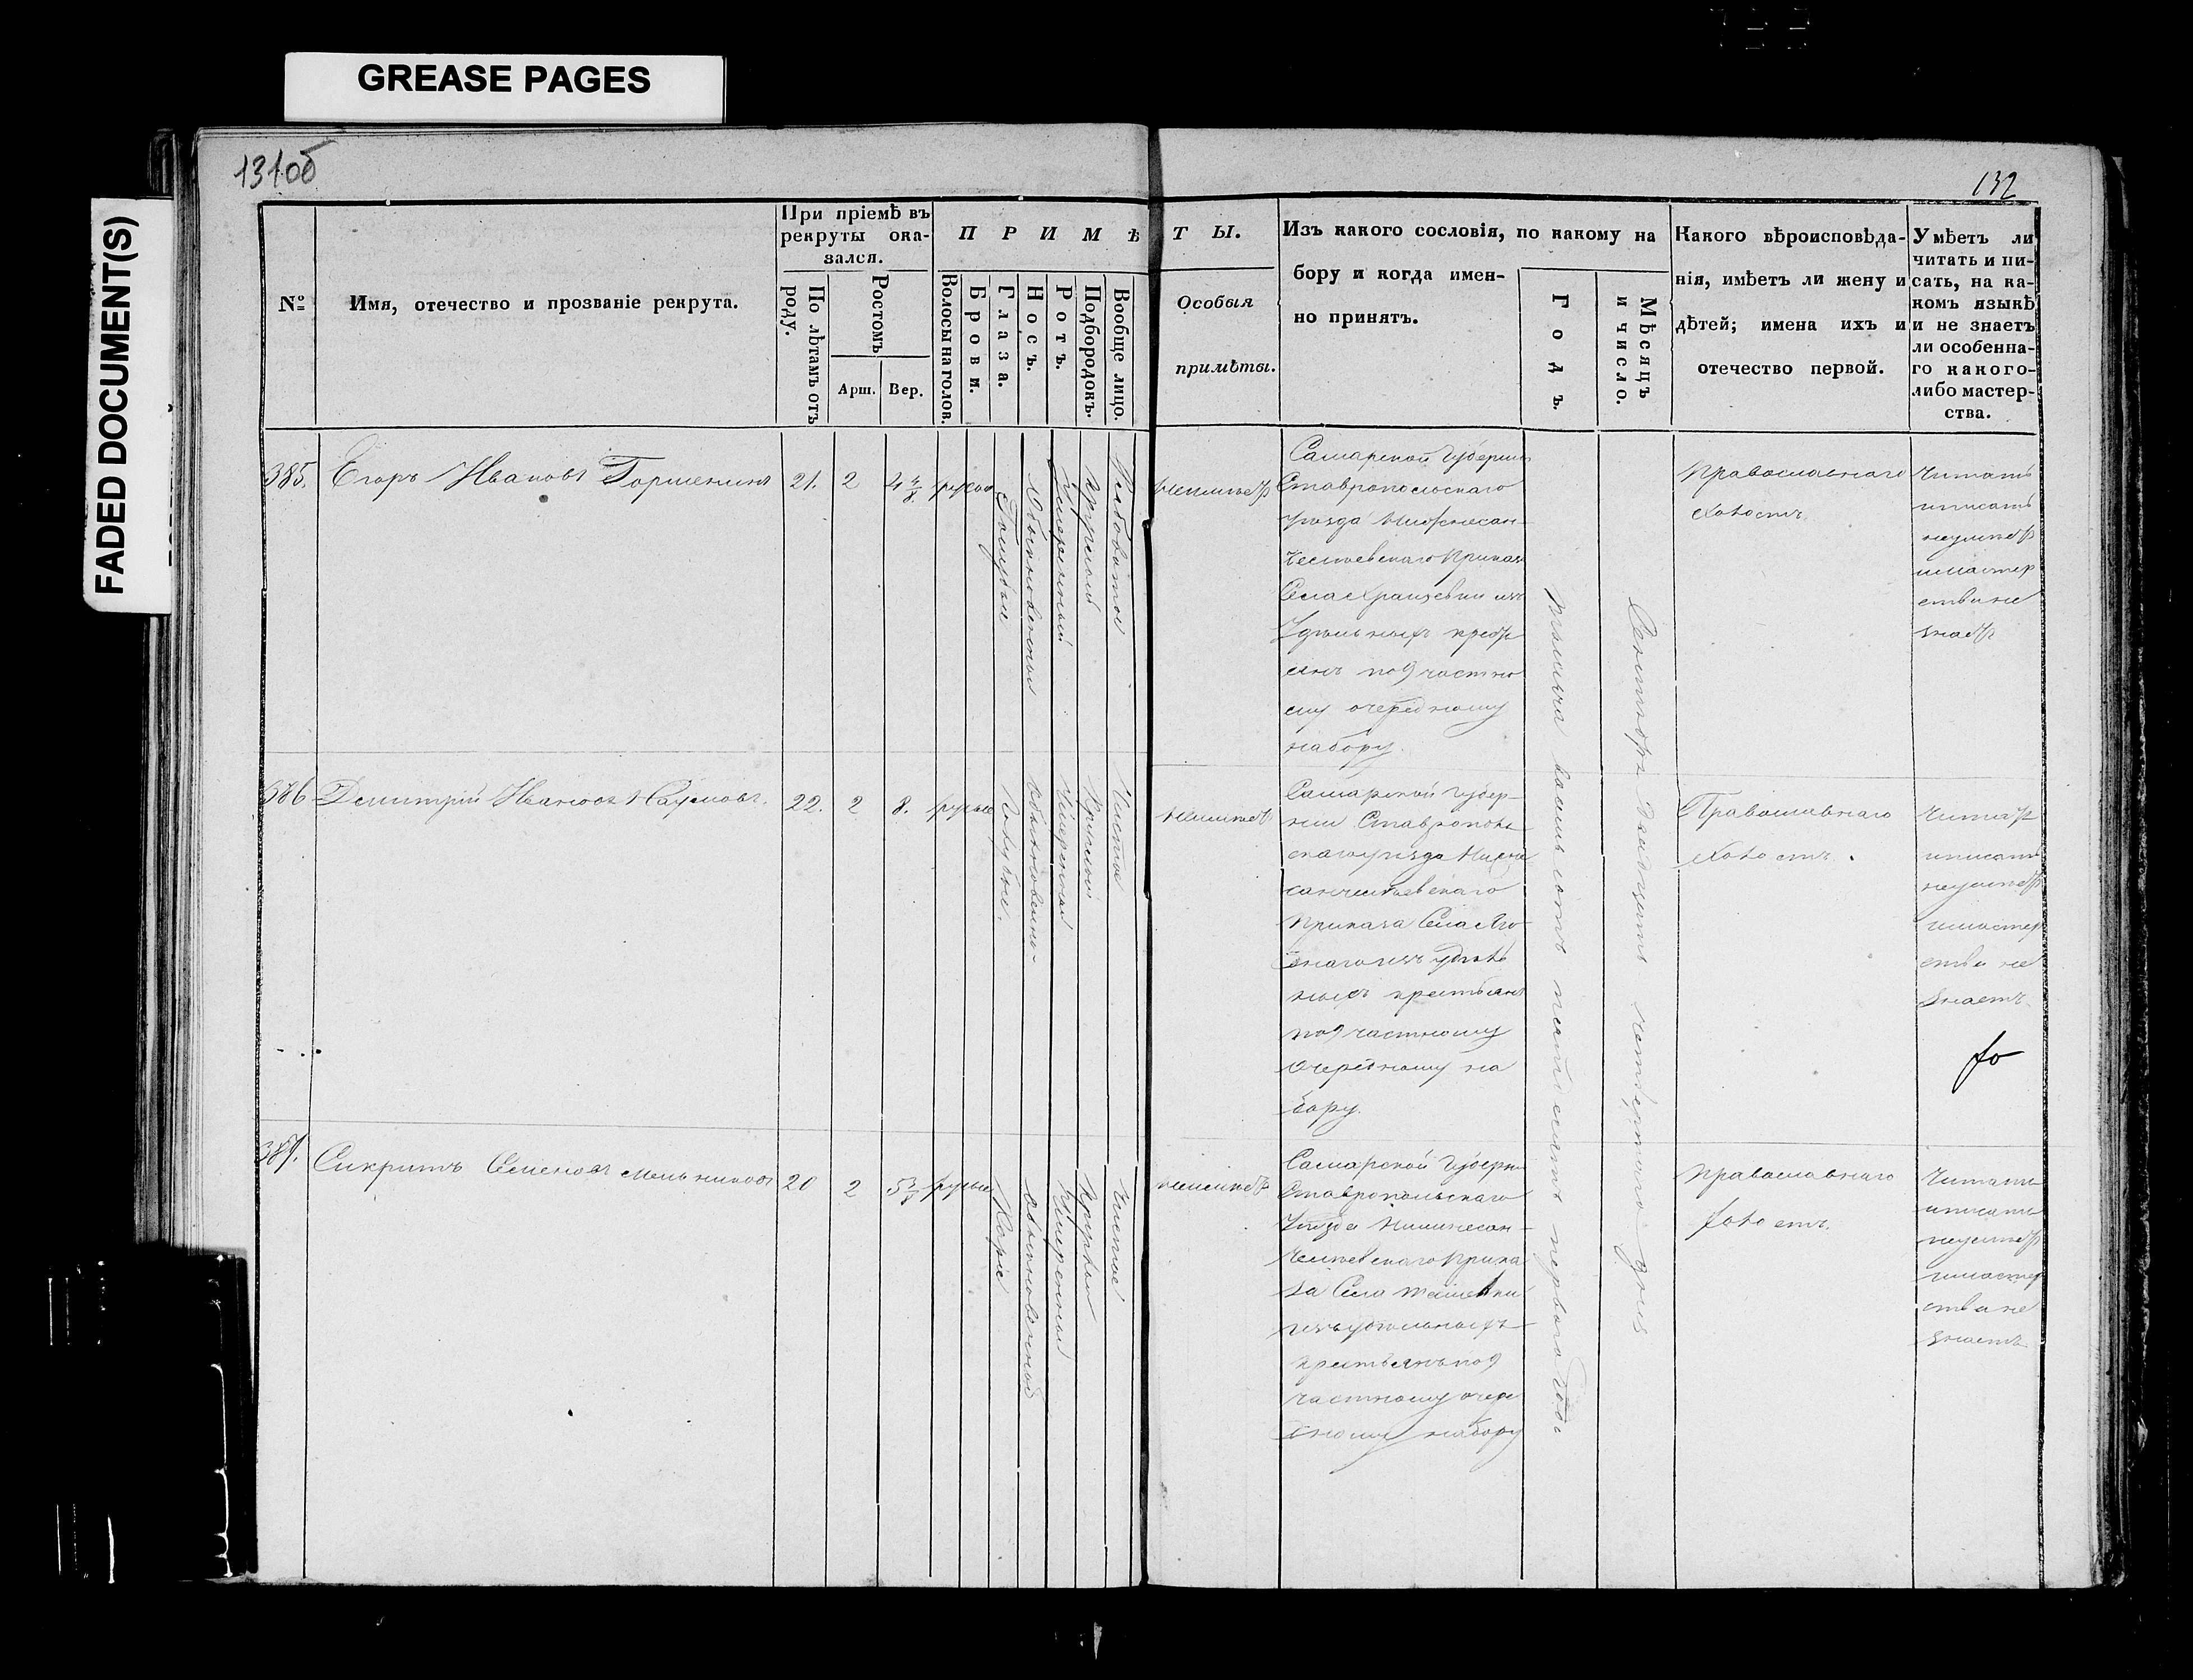 GREASE PAGES
FADED DOCUMENT(S)
131об
132
№
Имя, отечество и прозваніе рекрута.
При пріемѣ въ
рекруты ока-
зался.
По лѣтамъ отъ
роду.
Ростомъ
Арш.
Вер.
П Р И М Ѣ Т Ы.
Волосы на голов.
Брови.
Глаза.
Носъ.
Ротъ.
Подбородокъ.
Вообще лицо.
Особыя
примѣты.
Изъ какого сословія, по какому на
бору и когда имен-
но принятъ.
Годъ.
Мѣсяцъ
и число.
Какого вѣроисповѣда-
нія, имѣетъ ли жену и
дѣтей; имена ихъ и
отечество первой.
Умѣетъ ли
читать и пи-
сать, на ка-
комъ языкѣ
и не знаетъ
ли особенна-
го какого-
либо мастер-
ства.
385.
Егоръ Ивановъ Горшенинъ
21.
2
4 4/8
русые
Голубые
Обыкновенный
Умеренный
Круглый
Рябоватое
неимеетъ
Самарской Губерніи
Ставропольскаго
уезда Нижнесан-
челеевскаго Приказа
Села Хрящевки изъ
Удельныхъ крест
янъ по 9 частно
му очередному
набору.
Тысяча восемьсотъ пятьдесятъ перваго года
Сентября двадцать четвертаго дня
Православнаго
холостъ.
Читать
иписать
неумеетъ
имастер
ства не
знаетъ
386
Дмитрій Ивановъ Наумовъ.
22.
2
8.
русые
Голубые.
обыкновенно
Умеренной
Круглой
Чистое
неимеетъ
Самарской Губер-
нии Ставрополь
скаго уезда Нижне
санчелеевскаго
Приказа Села Яго
днаго изъ удель
ныхъ крестьянъ
по 9 частному
очередному на
бору.
Православнаго
холостъ.
Читать
иписать
неумеетъ
имастер
ства не
знаетъ.
387.
Семеновъ Мельниковъ
20
2
5 3/8
русые
Карие
обыкновенной
Умеренный
Круглый
Чистое
неимеетъ
Самарской Губерни
Ставропольскаго
Уезда Нижнесан-
челеевскаго Прика
за Села Ташевки
изъ удельныхъ
крестьянъ по 9
частному очере
дному набору
Православнаго
холостъ.
Читать
иписать
неумеетъ
имастер
ства не
знаетъ.